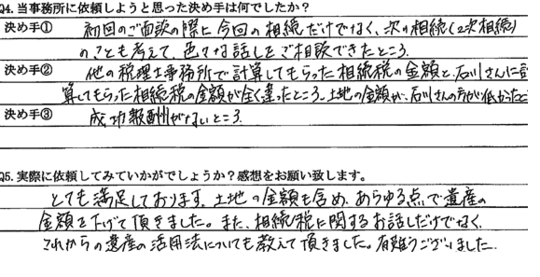 Q4. 当事務所に依頼しようと思った決め手は何でしたか？
決め手① 初回のご面談の際に今回の相続だけでなく、次の相続(2次相続)
のことも考えて、色々な話しをご相談できたところ。
決め手② 他の税理士事務所で計算してもらった相続税の金額と、石川さんに計
算してもらった相続税の金額が全く違ったところ。土地の金額が、石川さんの方が低かったこ
決め手③ 成功報酬がないところ
Q5. 実際に依頼してみていかがでしょうか？感想をお願い致します。
とても満足しております。土地の金額も含め、あらゆる点で遺産の
金額を下げて頂きました。また、相続税に関するお話しだけでなく、
これからの遺産の活用法についても教えて頂きました。有難うございました。